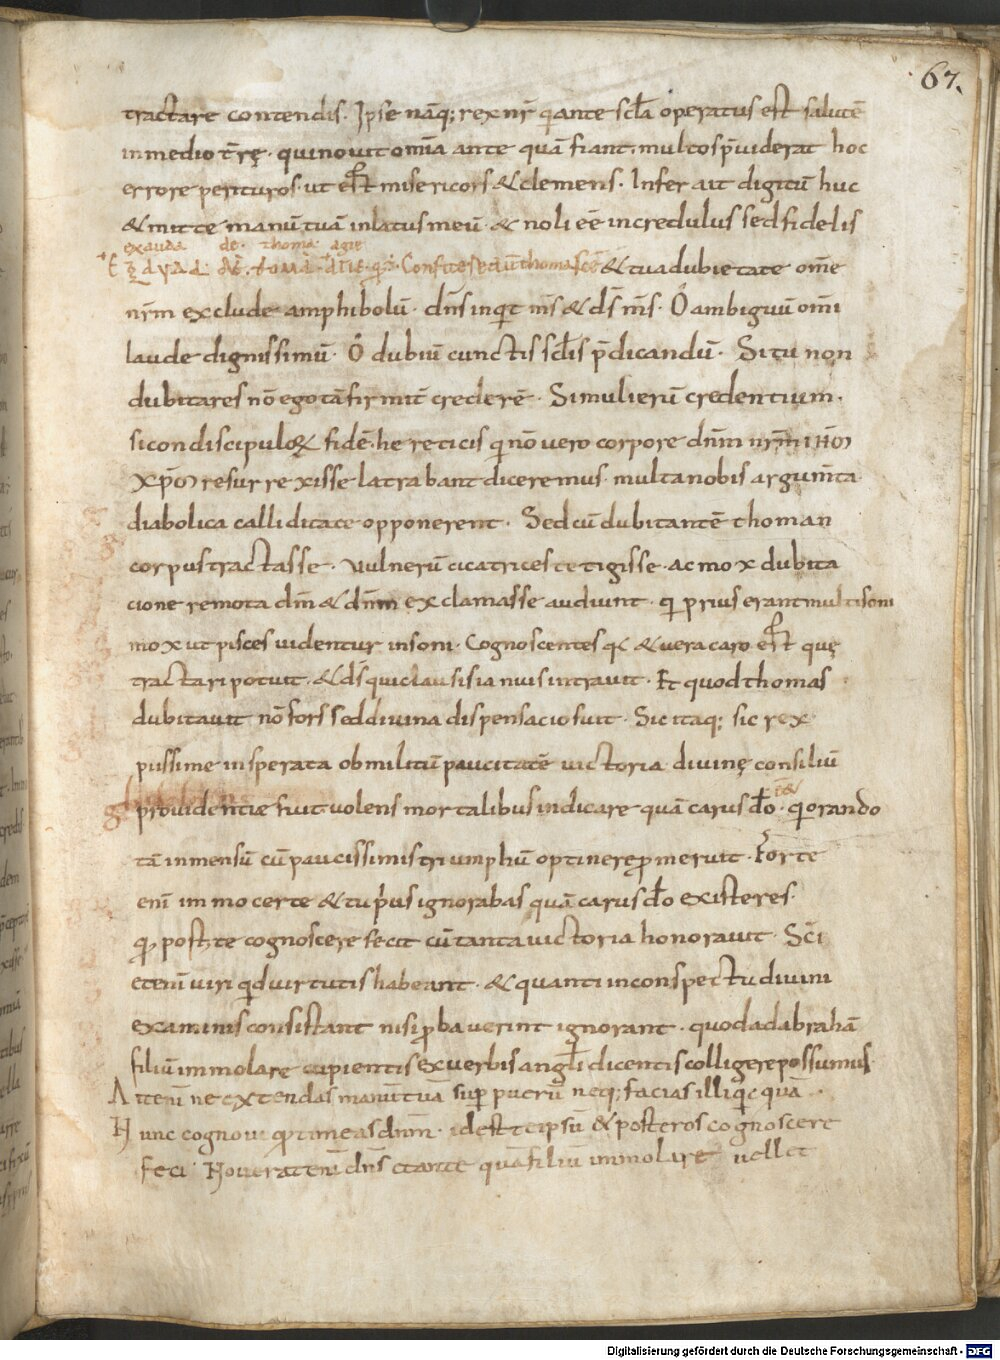 67.
tractare contendis. Ipse nāq; rex nr̄ qui ante sc̄la operatus est salutē
inmedio t̄rę. qui nouit om̄ia ante quā fiant. multos p̄uiderat hoc
errore perituros. ut est misericors & clemens. Infer ait digitū huc
& mitte manū tuā in latus meū. & noli eē incredulus sed fidelis
de thoma
Confitese cū thoma sc̄e & tua dubietate om̄e
nr̄m exclude amphibolū. dn̄s inquit m̄s & ds̄ m̄s. O ambiguū om̄i
laude dignissimū. O dubiū cunctis sc̄lis p̄dicandū. Si tu non
dubitares nō ego tā firmit̄ crederē. Si mulierū credentium.
si condiscipuloꝝ fidē. heretici q nō uero corpore dn̄m nr̄m ihm̄
xp̄m resurrexisse latrabant diceremus. multa nobis argum̄ta
diabolica calliditate opponerent. Sed cū dubitantē thoman
corpus tractasse. uulnerū cicatrices tetigisse. ac mox dubita
cione remota dm̄ & dn̄m exclamasse audiunt. qi prius erant multisoni
mox ut pisces uidentur insoni. Cognoscentes q & uera caro est quę
tractari potuit. & ds̄ qui clausis ianuis intrauit. Et quod thomas
dubitauit nō fors sed diuina dispensacio fuit. Sic itaq; sic rex
piissime insperata ob militū paucitatē uictoria diuinę consiliū
prouidentiae fuit uolens mortalibus indicare quā carus dō. qi orando
tā inmensū cū paucissimis triumphū optinere ꝓmeruit. Forte
eni immo certe & tu p̄us ignorabas quā carus dō existeres.
post te cognoscere fecit cū tanta uictoria honorauit. Sc̄i
etenī uiri qid uirtutis habeant. & quanti in conspectu diuini
examinis consistant nisi ꝓbauerint ignorant. quod ad abrahā
filiū immolare cupientis ex uerbis angli dicentis colligere possumus.
Attenī ne extendas manū tuā sup̄ puerū neq; facias illi qicquā.
Nunc cognoui q timeas dn̄m. id est te ipsū & posteros cognoscere
feci. Nouerat enī dn̄s et ante quā filiū immolare uellet
Digitalisierung gefördert durch die Deutsche Forschungsgemeinschaft - DFG